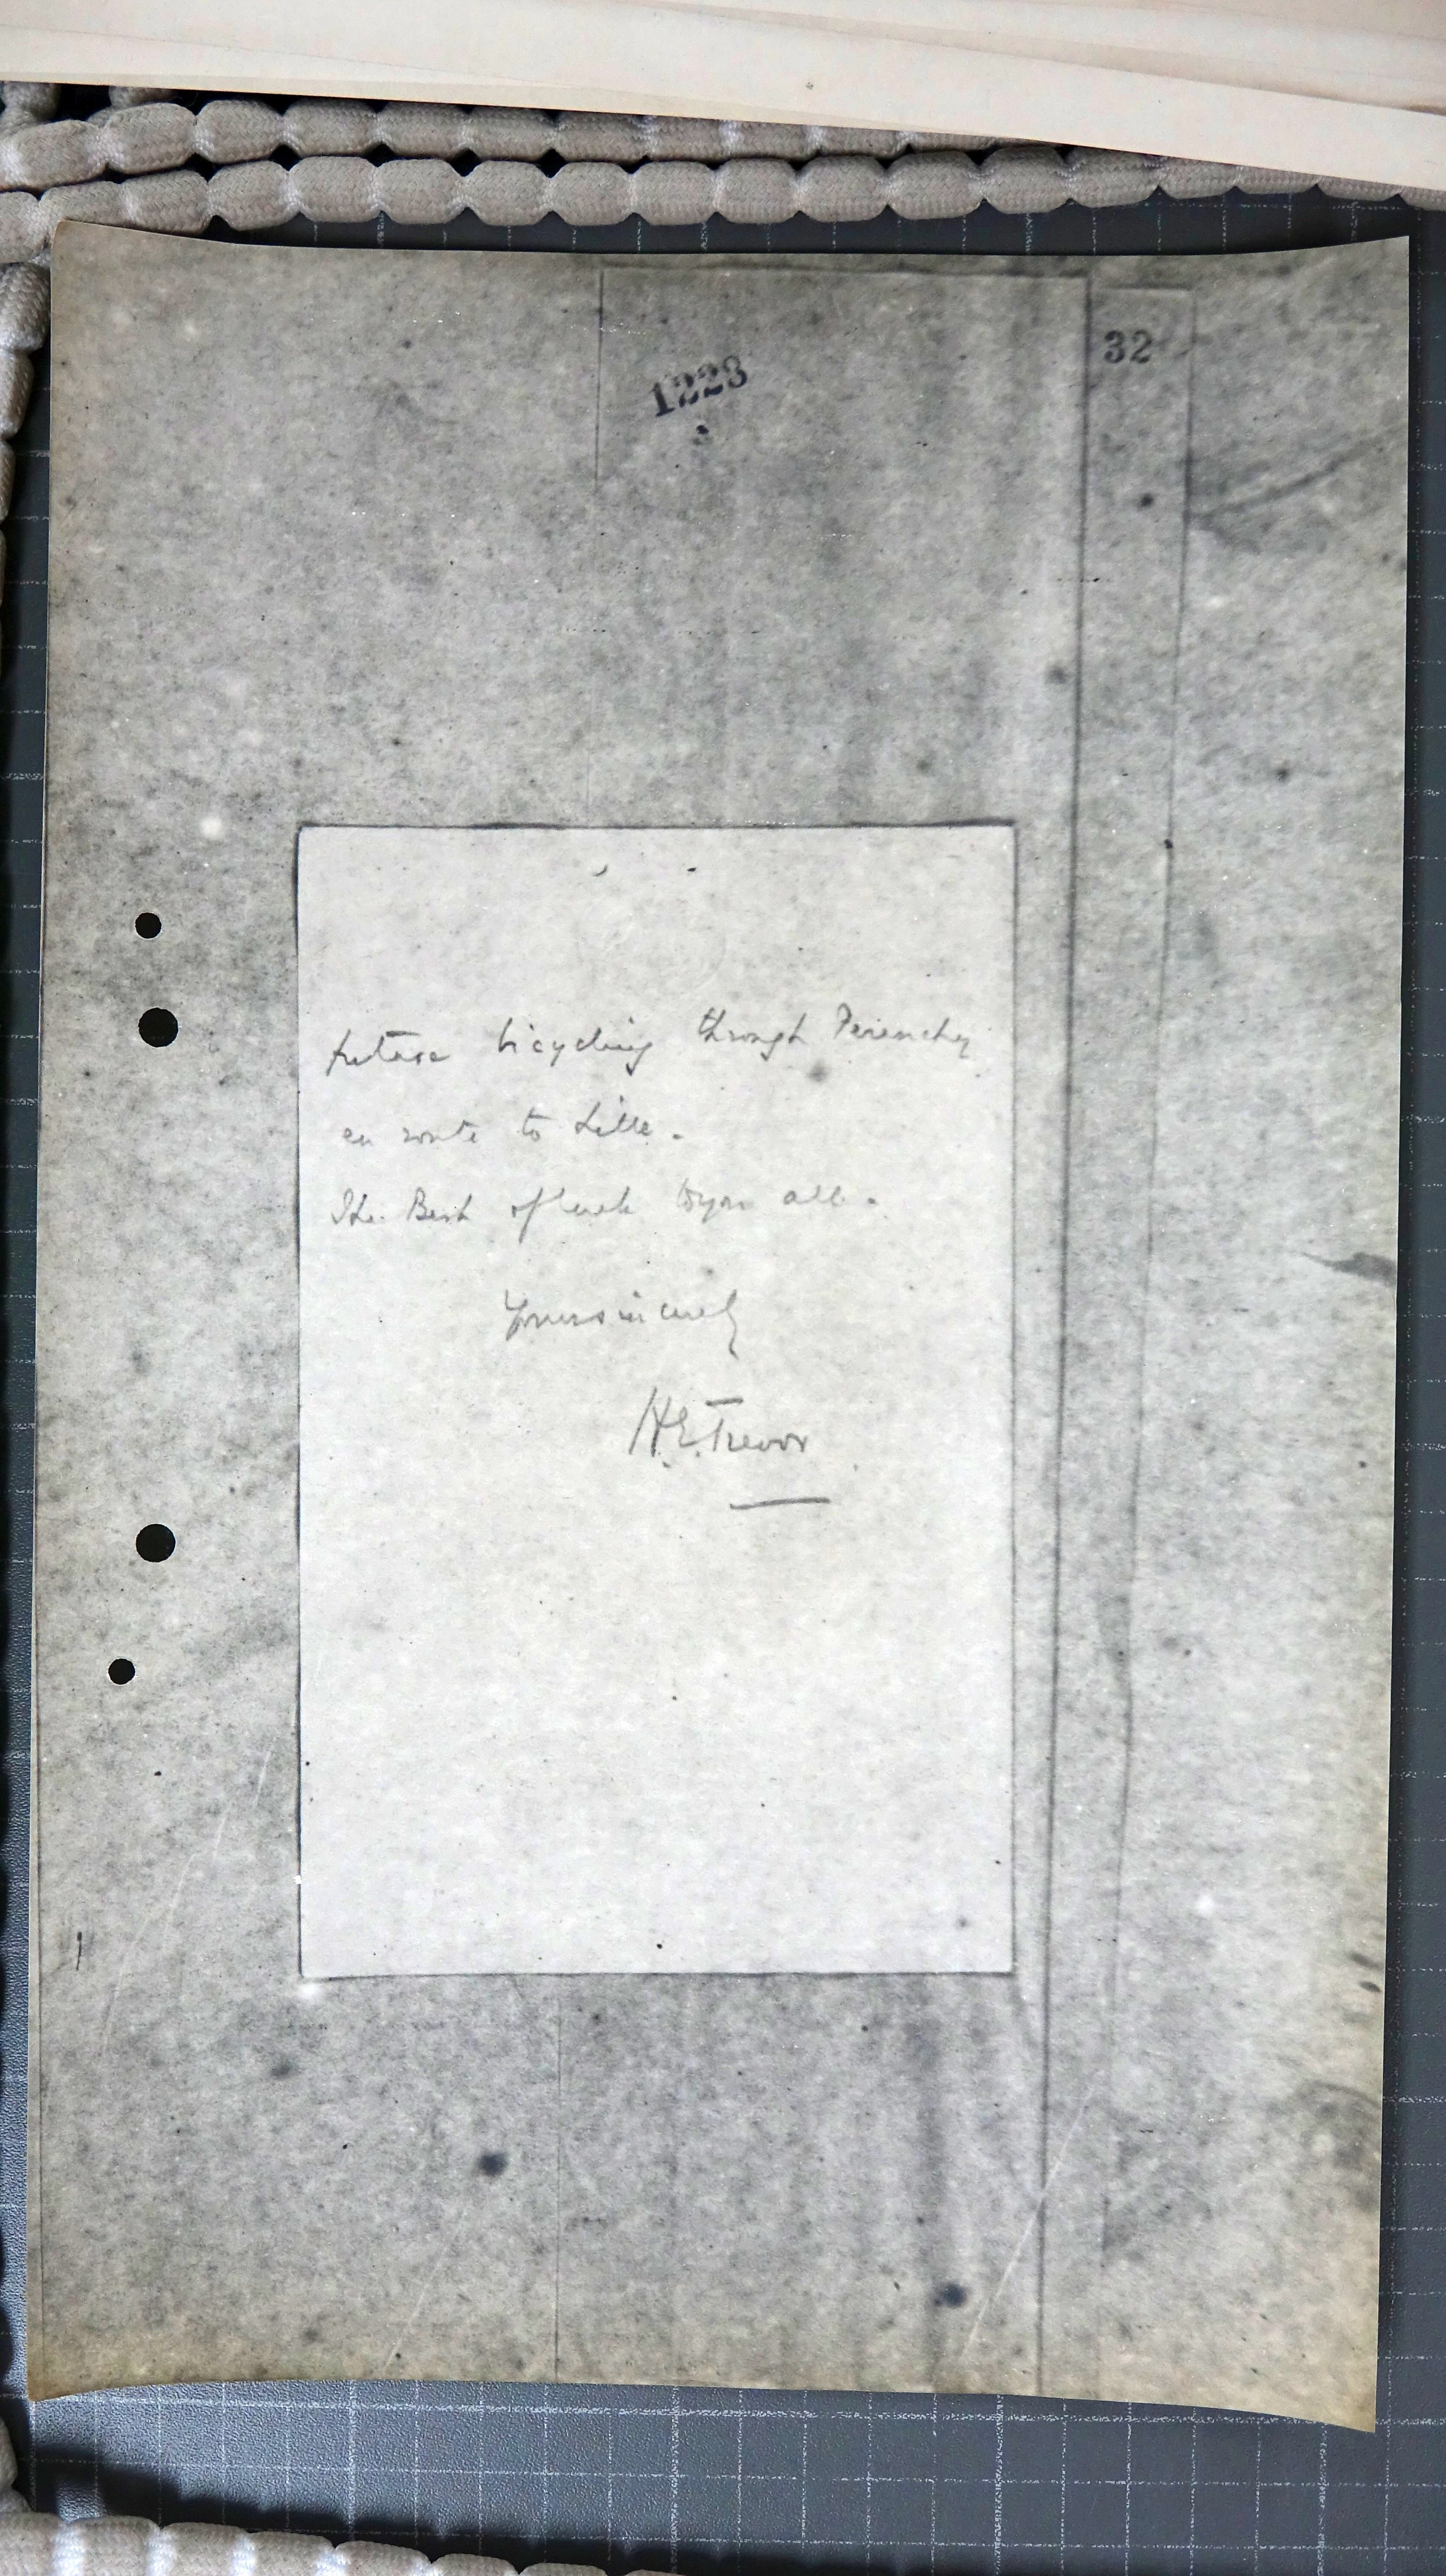 32
1223
picture bicycling through Perenchy
en route to Lille.
The Best of luck to you all.
Yours sincerely
H.E. Trevor